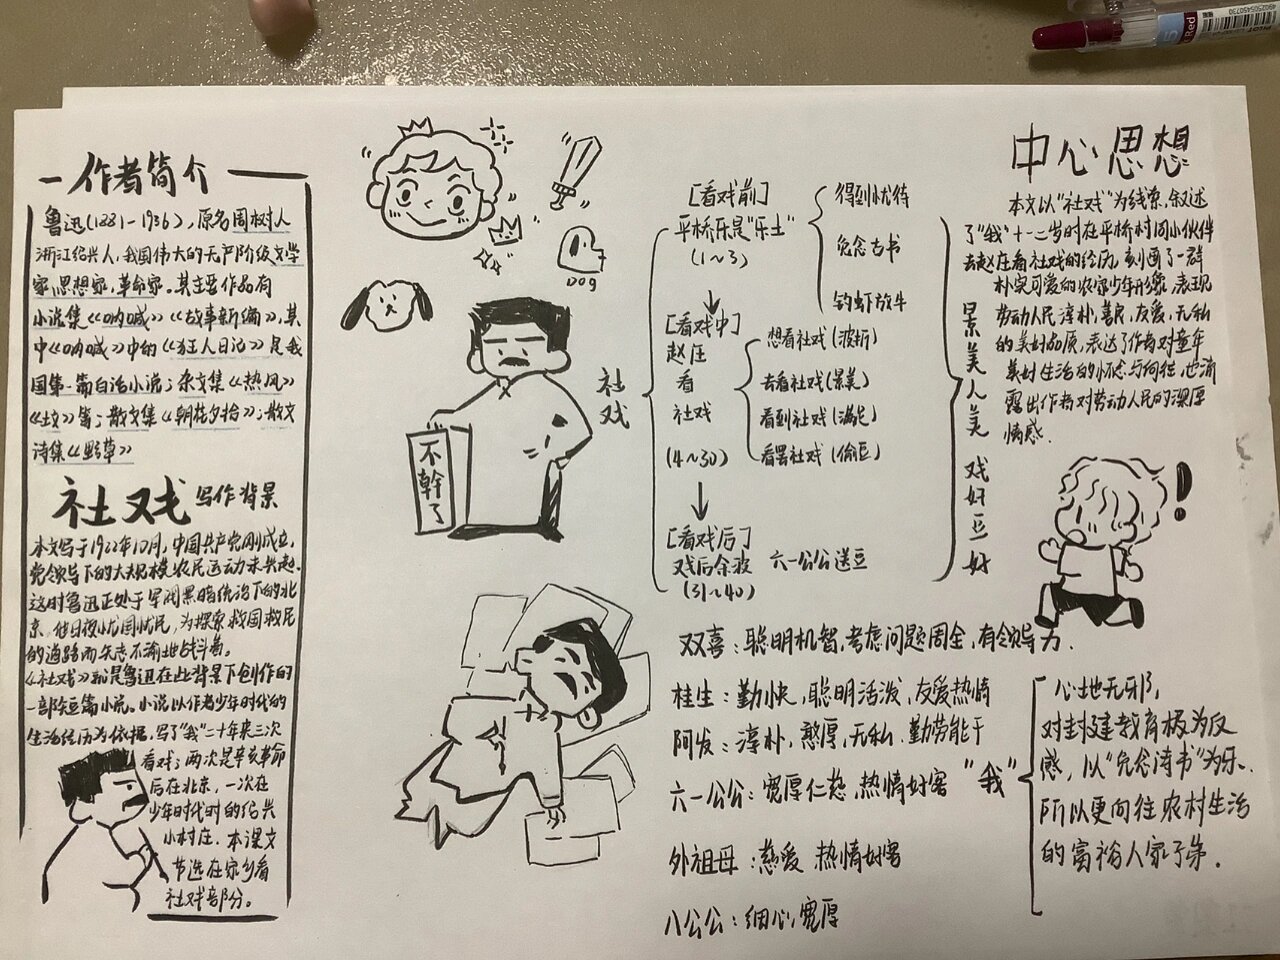 作者简介
鲁迅(1881-1936),原名周树人
浙江绍兴人,我国伟大的无产阶级文学
家,思想家,革命家。其主要作品有
小说集《呐喊》《故事新编》,其
中《呐喊》中的《狂人日记》是我
国第一篇白话小说;杂文集《热风》
《坟》等;散文集《朝花夕拾》;散文
诗集《野草》
社戏 写作背景
本文写于1922年10月,中国共产党刚成立,
党领导下的大规模农民运动未兴起.
这时鲁迅正处于军阀黑暗统治下的北
京,他日夜忧国忧民,为探索救国救民
的道路而矢志不渝地战斗着。
《社戏》就是鲁迅在此背景下创作的
一部短篇小说。小说以作者少年时代的
生活经历为依据,写了"我"二十年来三次
看戏;两次是辛亥革命
后在北京,一次在
少年时代时的绍兴
小村庄.本课文
节选在家乡看
社戏部分。
DOG
不幹了
社戏
[看戏前]
平桥乐是"乐土"
(1~3)
得到优待
免念古书
钓虾放牛
[看戏中]
赵庄
看
社戏
(4~30)
想看社戏(波折)
去看社戏(景美)
看到社戏(满足)
看罢社戏(偷豆)
[看戏后]
戏后余波
(31~40)
六一公公送豆
景美人美 戏好豆好
中心思想
本文以"社戏"为线索,叙述
了"我"十一二岁时在平桥村同小伙伴
去赵庄看社戏的经历,刻画了一群
朴实可爱的农家少年形象,表现
劳动人民淳朴,善良,友爱,无私
的美好品质,表达了作者对童年
美好生活的怀念与向往,也流
露出作者对劳动人民的深厚
情感.
!
双喜:聪明机智,考虑问题周全,有领导力.
桂生:勤快,聪明活泼,友爱热情
阿发:淳朴,憨厚,无私.勤劳能干
六一公公:宽厚仁慈,热情好客
外祖母:慈爱 热情好客
八公公:细心,宽厚
"我"
心地无邪,
对封建教育极为反
感,以"免念诗书"为乐.
所以更向往农村生活
的富裕人家子弟.
Red